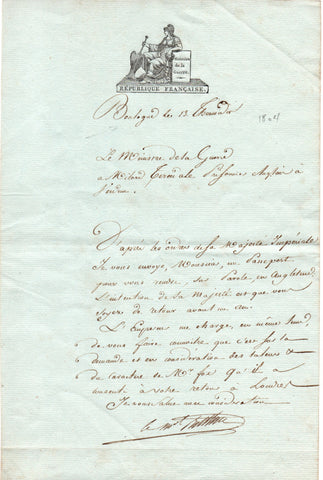 Ministère
de la
Guerre
RÉPUBLIQUE FRANÇAISE.
Boulogne les 13
Le Ministre de la Guerre
a Prisonnier Anglais à
D'après les ordres de Sa Majesté Impériale
Je vous envoye, Monsieur, un Passeport
pour vous rendre sur Parole en Angleterre
L'intention de Sa Majesté est que vous
soyez de retour avant un an.
L'Empereur me charge, en même tems,
de vous faire connoitre que c'est sur la
demande et en considération des talens &
du caractere de Mr. Fox qu'il a
à votre retour à Londres
Je vous salue avec considération
le